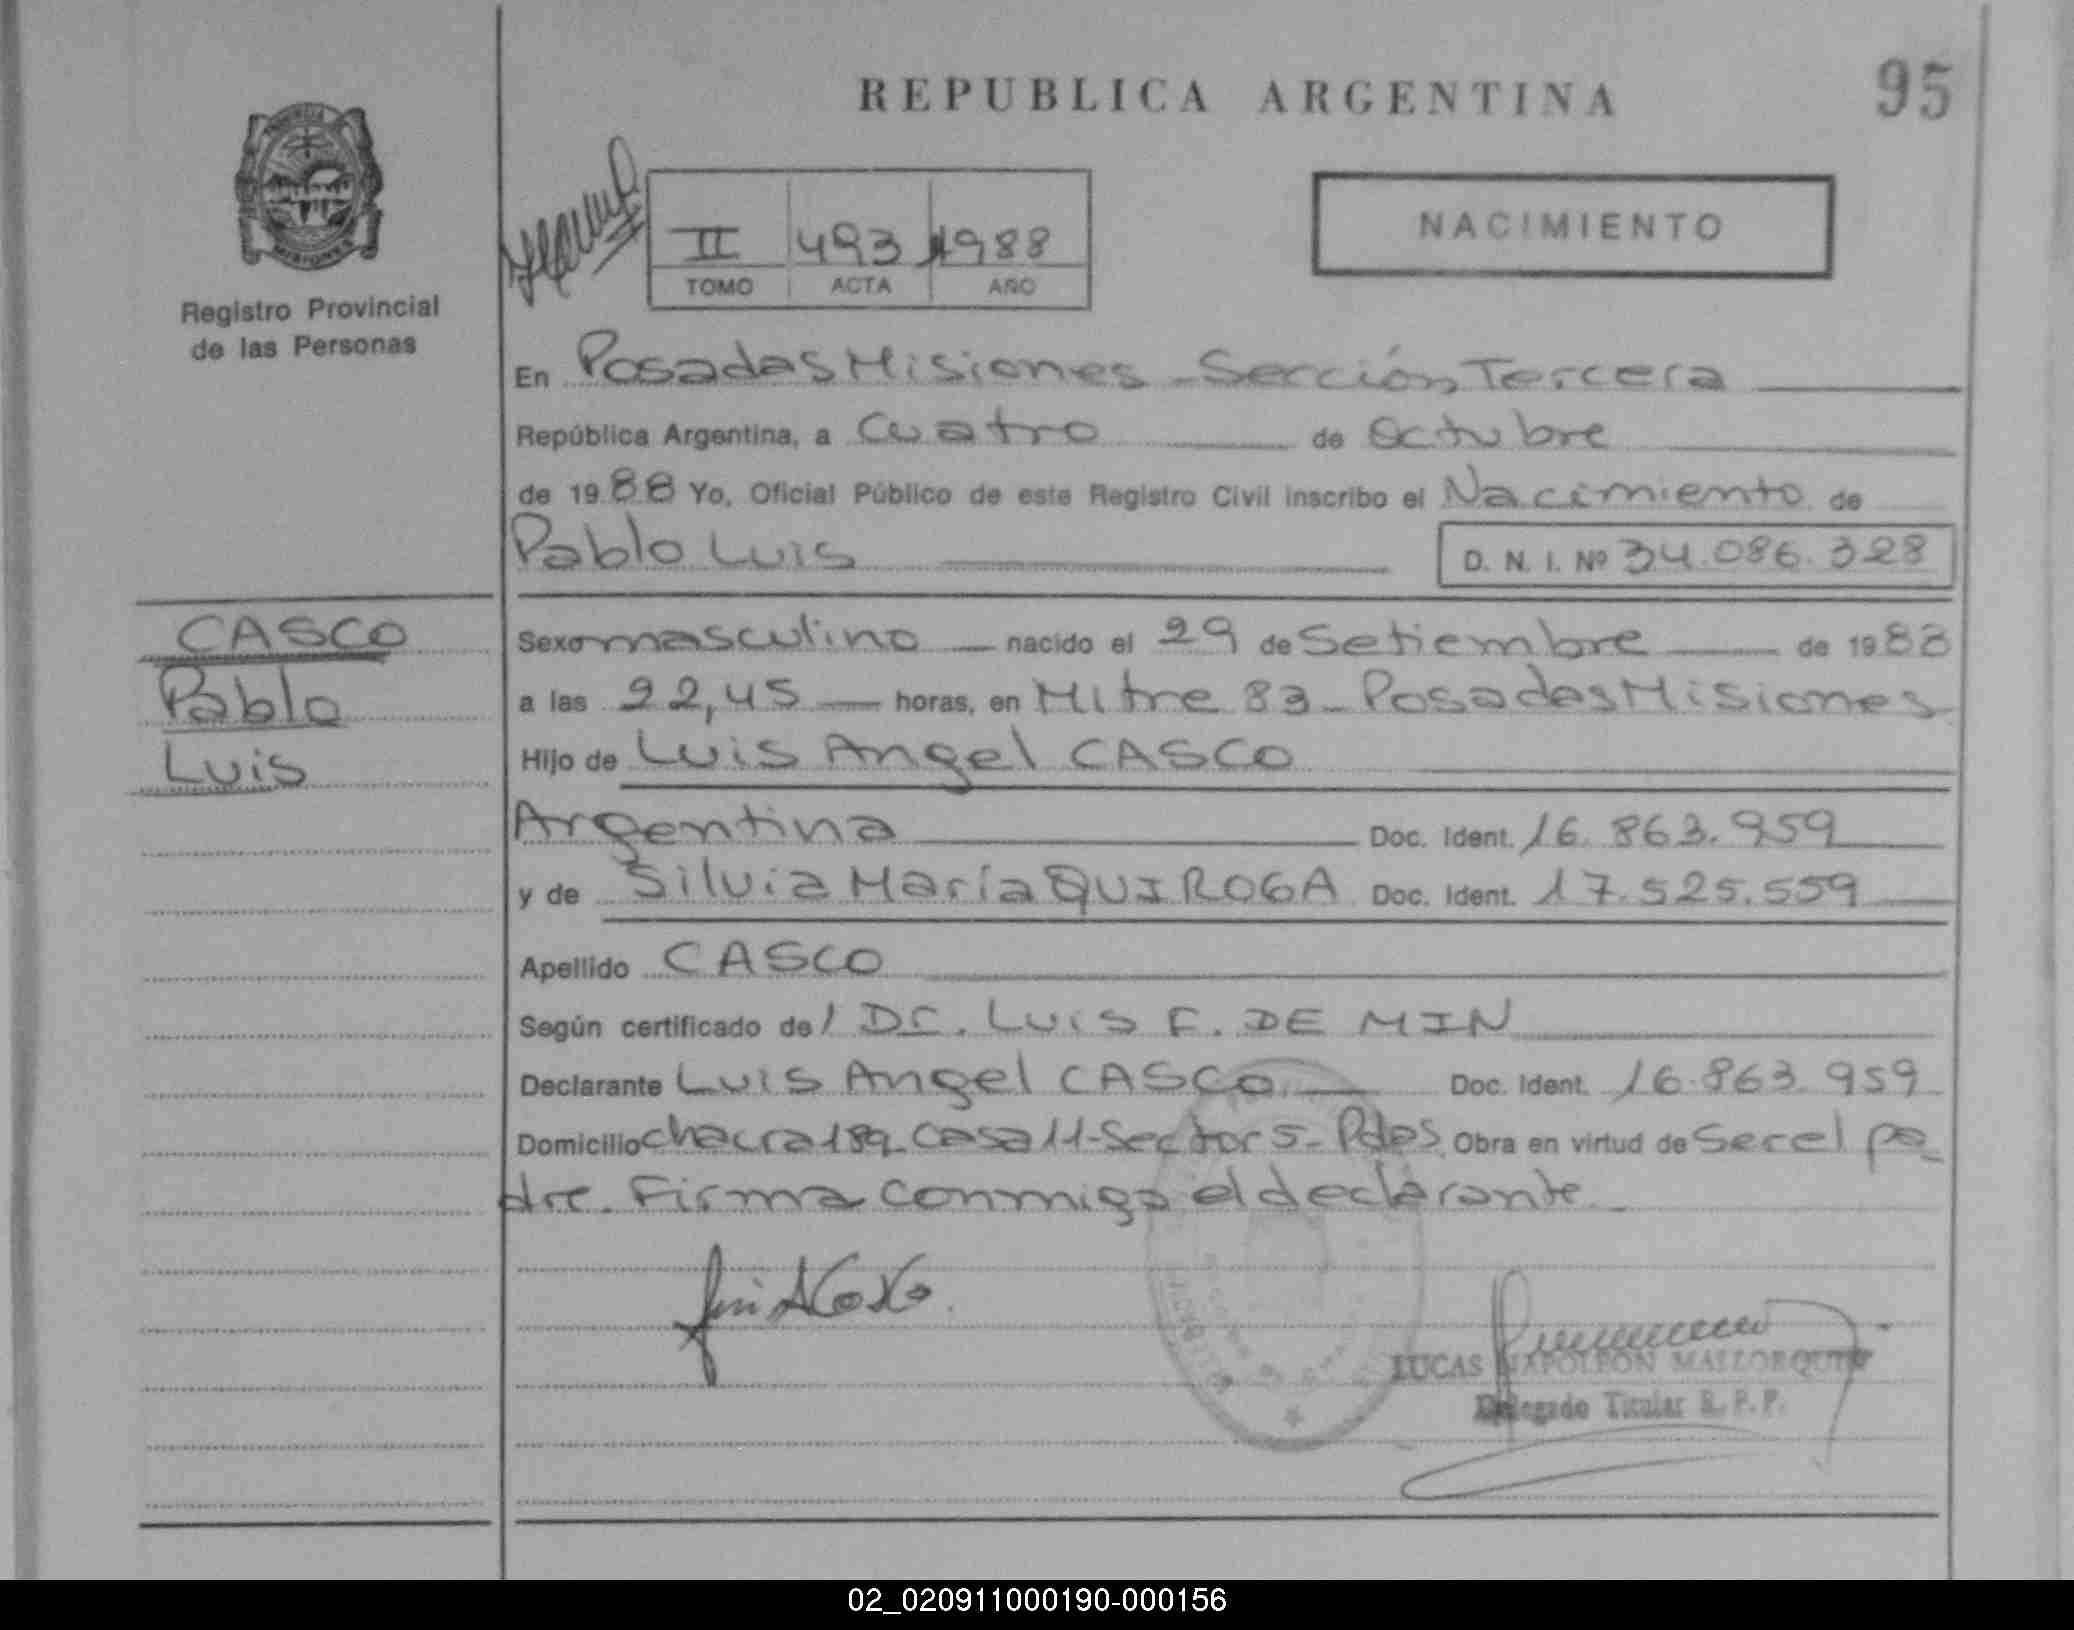 REPUBLICA ARGENTINA
95
II 493 1988
TOMO ACTA AÑO
NACIMIENTO
Registro Provincial
de las Personas
En Posadas Misiones - Sección Tercera
República Argentina, a Cuatro de Octubre
de 1988 Yo, Oficial Público de este Registro Civil inscribo el Nacimiento de
Pablo Luis D. N. I. Nº 34.086.328
CASCO
Pablo
Luis
Sexo masculino nacido el 29 de Setiembre de 1988
a las 22,45 horas, en Mitre 83 - Posadas Misiones
Hijo de Luis Angel CASCO
Argentina Doc. Ident. 16.863.959
y de Silvia María QUIROGA Doc. Ident. 17.525.559
Apellido CASCO
Según certificado de/ Dr. LUIS F. DE MIN
Declarante Luis Angel CASCO Doc. Ident. 16.863.959
Domicilio chacra 189 - Casa 11 - Sector 5 - Pdas. Obra en virtud de Ser el pa-
dre. Firma conmigo el declarante.
LUCAS NAPOLEON MALLORQUIN
Delegado Titular R. P. P.
02_020911000190-000156